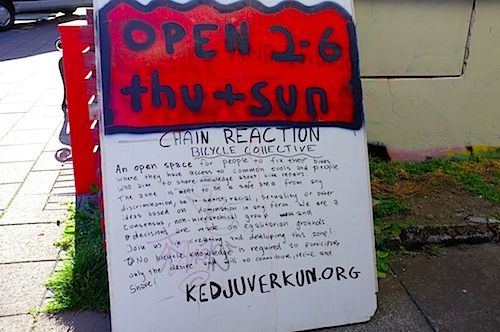 OPEN 2-6
thu + sun
CHAIN REACTION
BICYCLE COLLECTIVE
An open space for people to fix their bikes
where they have access to common tools and people
who aim to share knowledge about bike repairs
The zone is want to be a safe area from any
discrimination, be it sexist, racial, sexuality or other
ideas based on domination in any form. We are a
consensus, non-hierarchical group and
decisions are made on egalitarian grounds
Join creating and developing this zone!
No bicycle knowledge is required to participate,
only the desire and will to contribute, and
Share!
KEDJUVERKUN.ORG